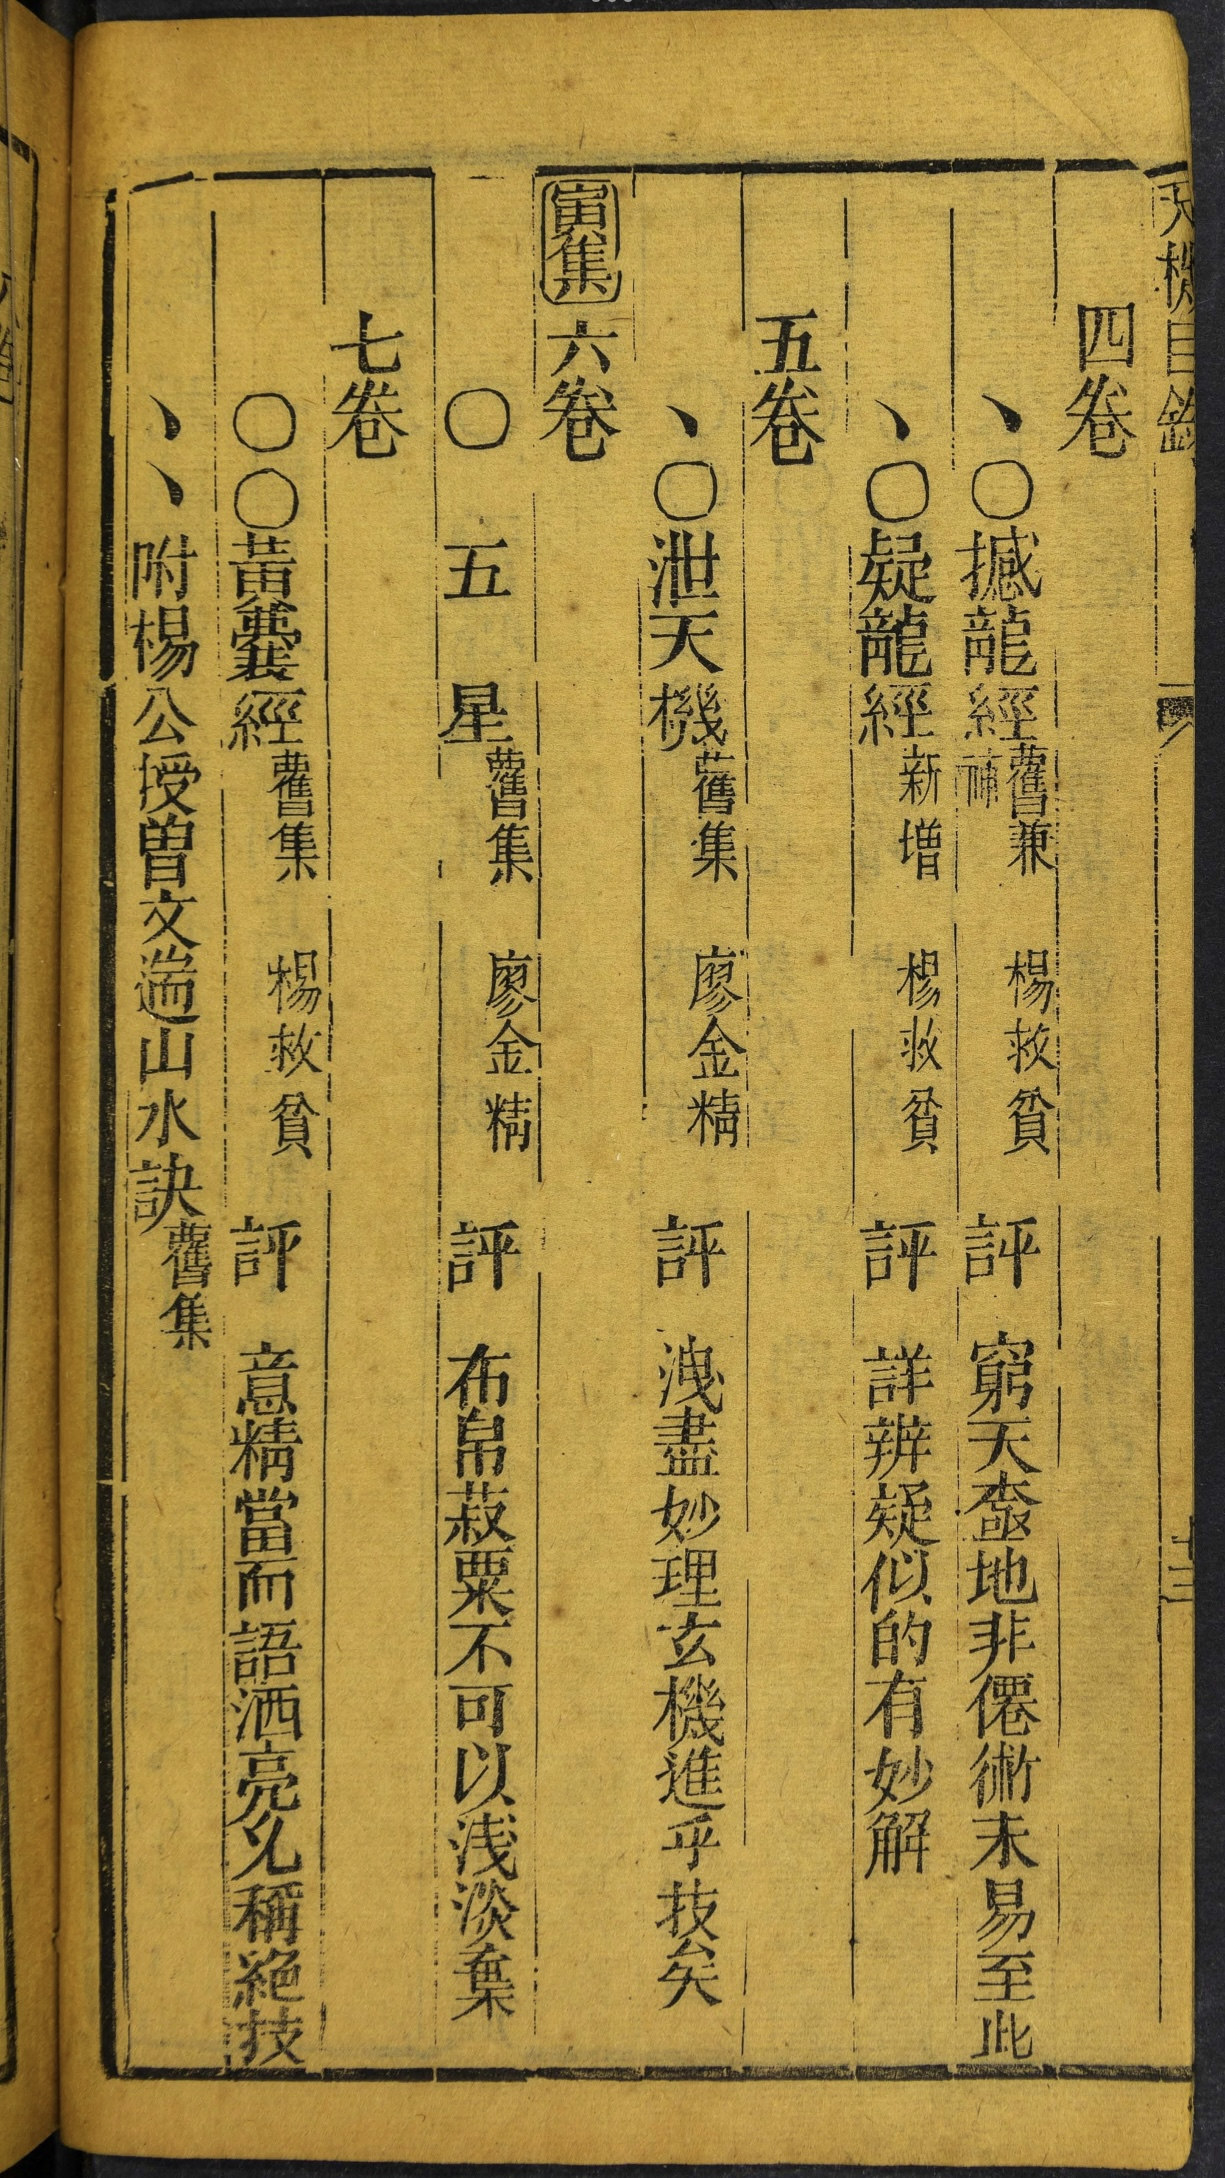 天機目錄
十三
四卷
、○撼龍經舊兼補 楊救貧 評 窮天盡地非僊術未易至此
、○疑龍經新增 楊救貧 評 詳辨疑似的有妙解
五卷
、○泄天機舊集 廖金精 評 洩盡妙理玄機進乎技矣
寅集 六卷
○ 五星舊集 廖金精 評 布帛菽粟不可以浅淡棄
七卷
○○黃囊經舊集 楊救貧 評 意精當而語洒亮允稱絶技
、、附楊公授曾文遄山水訣舊集